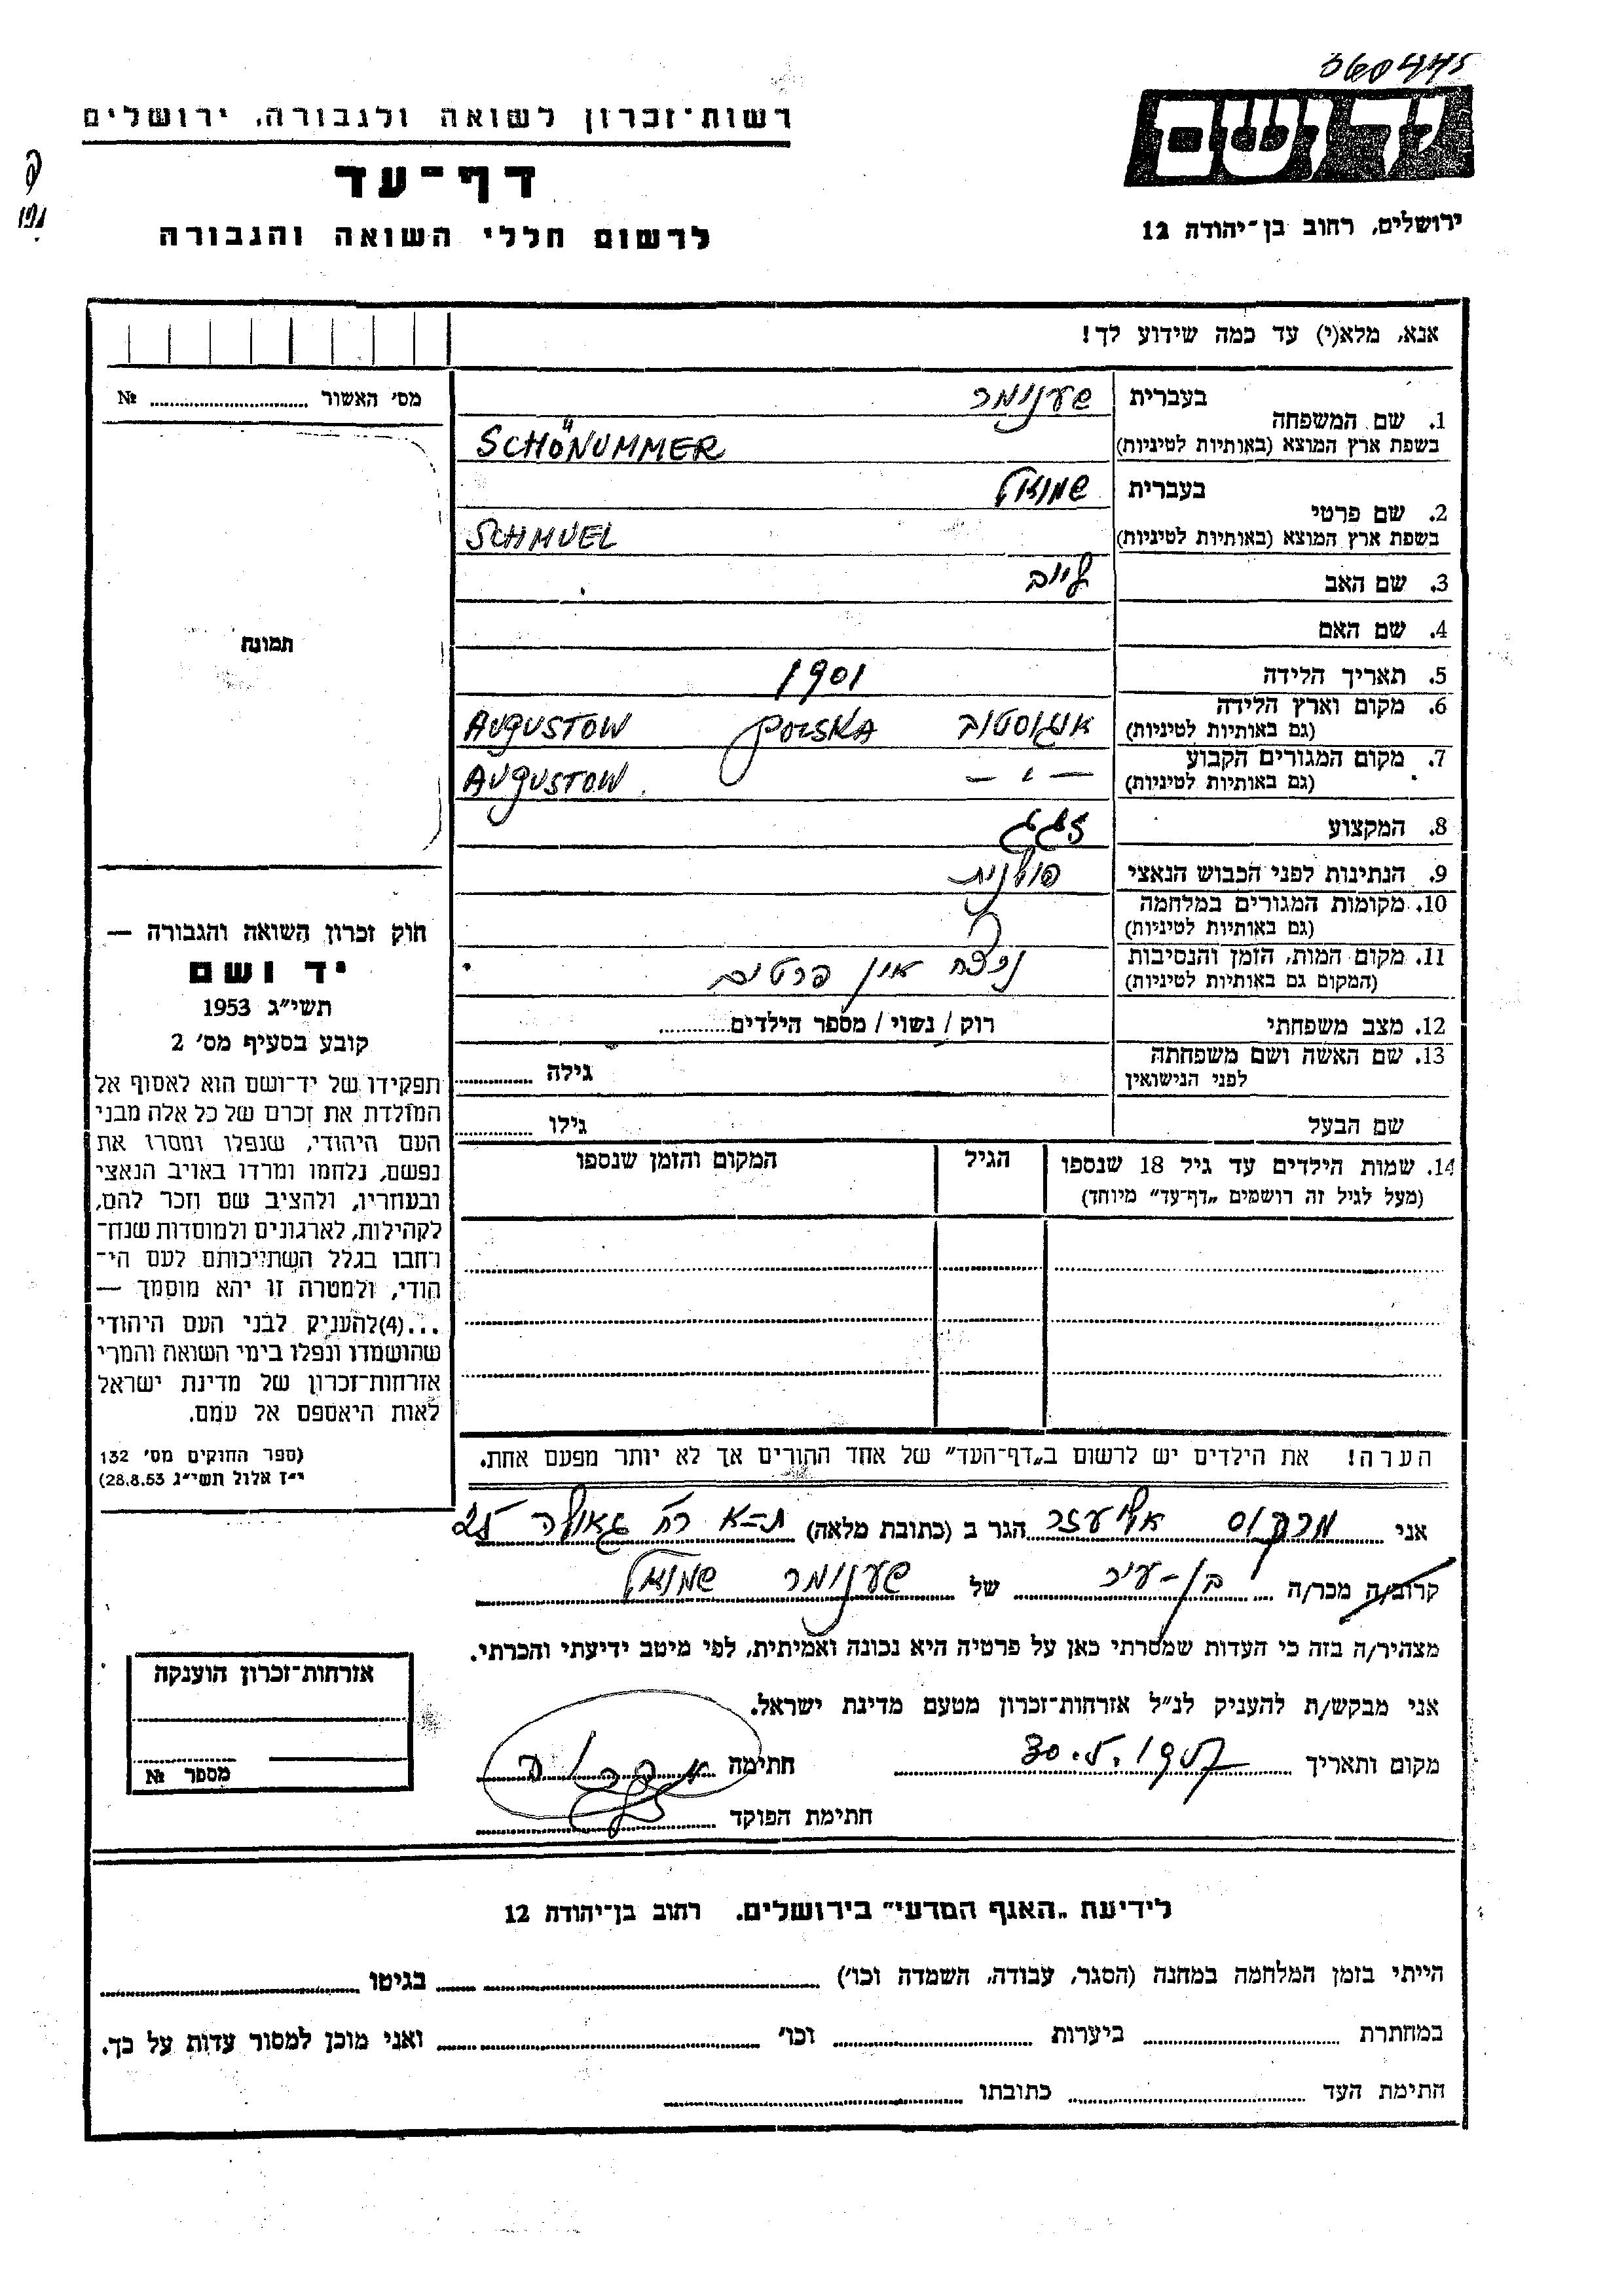 360445
יד ושם
רשות־זכרון לשואה ולגבורה, ירושלים
דף־עד
לרשום חללי השואה והגבורה
ירושלים, רחוב בן־יהודה 12
אנא, מלא(י) עד כמה שידוע לך!
מס׳ האשור ........ №
תמונה
בעברית שענומר
1. שם המשפחה
בשפת ארץ המוצא (באותיות לטיניות) SCHÖNUMMER
בעברית שמואל
2. שם פרטי
בשפת ארץ המוצא (באותיות לטיניות) SCHMUEL
3. שם האב לייב
4. שם האם
5. תאריך הלידה 1901
6. מקום וארץ הלידה
(גם באותיות לטיניות) אוגוסטוב POLSKA AUGUSTOW
7. מקום המגורים הקבוע
(גם באותיות לטיניות) — " — AUGUSTOW
8. המקצוע זגג
9. הנתינות לפני הכבוש הנאצי פולנית
10. מקומות המגורים במלחמה
(גם באותיות לטיניות)
11. מקום המות, הזמן והנסיבות
(המקום גם באותיות לטיניות) נספה אין פרטים
12. מצב משפחתי רוק / נשוי / מספר הילדים........
13. שם האשה ושם משפחתה
לפני הנישואין גילה ........
שם הבעל גילו ........
14. שמות הילדים עד גיל 18 שנספו הגיל המקום והזמן שנספו
(מעל לגיל זה רושמים „דף־עד״ מיוחד)
הערה! את הילדים יש לרשום ב„דף־העד״ של אחד ההורים אך לא יותר מפעם אחת.
חוק זכרון השואה והגבורה —
יד ושם
תשי״ג 1953
קובע בסעיף מס׳ 2
תפקידו של יד־ושם הוא לאסוף אל
המולדת את זכרם של כל אלה מבני
העם היהודי, שנפלו ומסרו את
נפשם, נלחמו ומרדו באויב הנאצי
ובעוזריו, ולהציב שם וזכר להם,
לקהילות, לארגונים ולמוסדות שנח־
רבו בגלל השתייכותם לעם הי־
הודי, ולמטרה זו יהא מוסמך —
...(4)להעניק לבני העם היהודי
שהושמדו ונפלו בימי השואה והמרי
אזרחות־זכרון של מדינת ישראל
לאות היאספם אל עמם.
(ספר החוקים מס׳ 132
י״ז אלול תשי״ג 28.8.53)
אני מרקוס אליעזר הגר ב (כתובת מלאה) ת–א רח׳ גאולה 25
קרוב/ה מכר/ה בן–עיר של שענומר שמואל
מצהיר/ה בזה כי העדות שמסרתי כאן על פרטיה היא נכונה ואמיתית, לפי מיטב ידיעתי והכרתי.
אני מבקש/ת להעניק לנ״ל אזרחות־זכרון מטעם מדינת ישראל.
מקום ותאריך 30.5.1957 חתימה
חתימת הפוקד
אזרחות־זכרון הוענקה
מספר №
לידיעת „האגף המדעי״ בירושלים, רחוב בן־יהודה 12
הייתי בזמן המלחמה במחנה (הסגר, עבודה, השמדה וכו׳) ........ בגיטו ........
במחתרת ........ ביערות ........ וכו׳ ........ ואני מוכן למסור עדות על כך.
חתימת העד ........ כתובתו ........